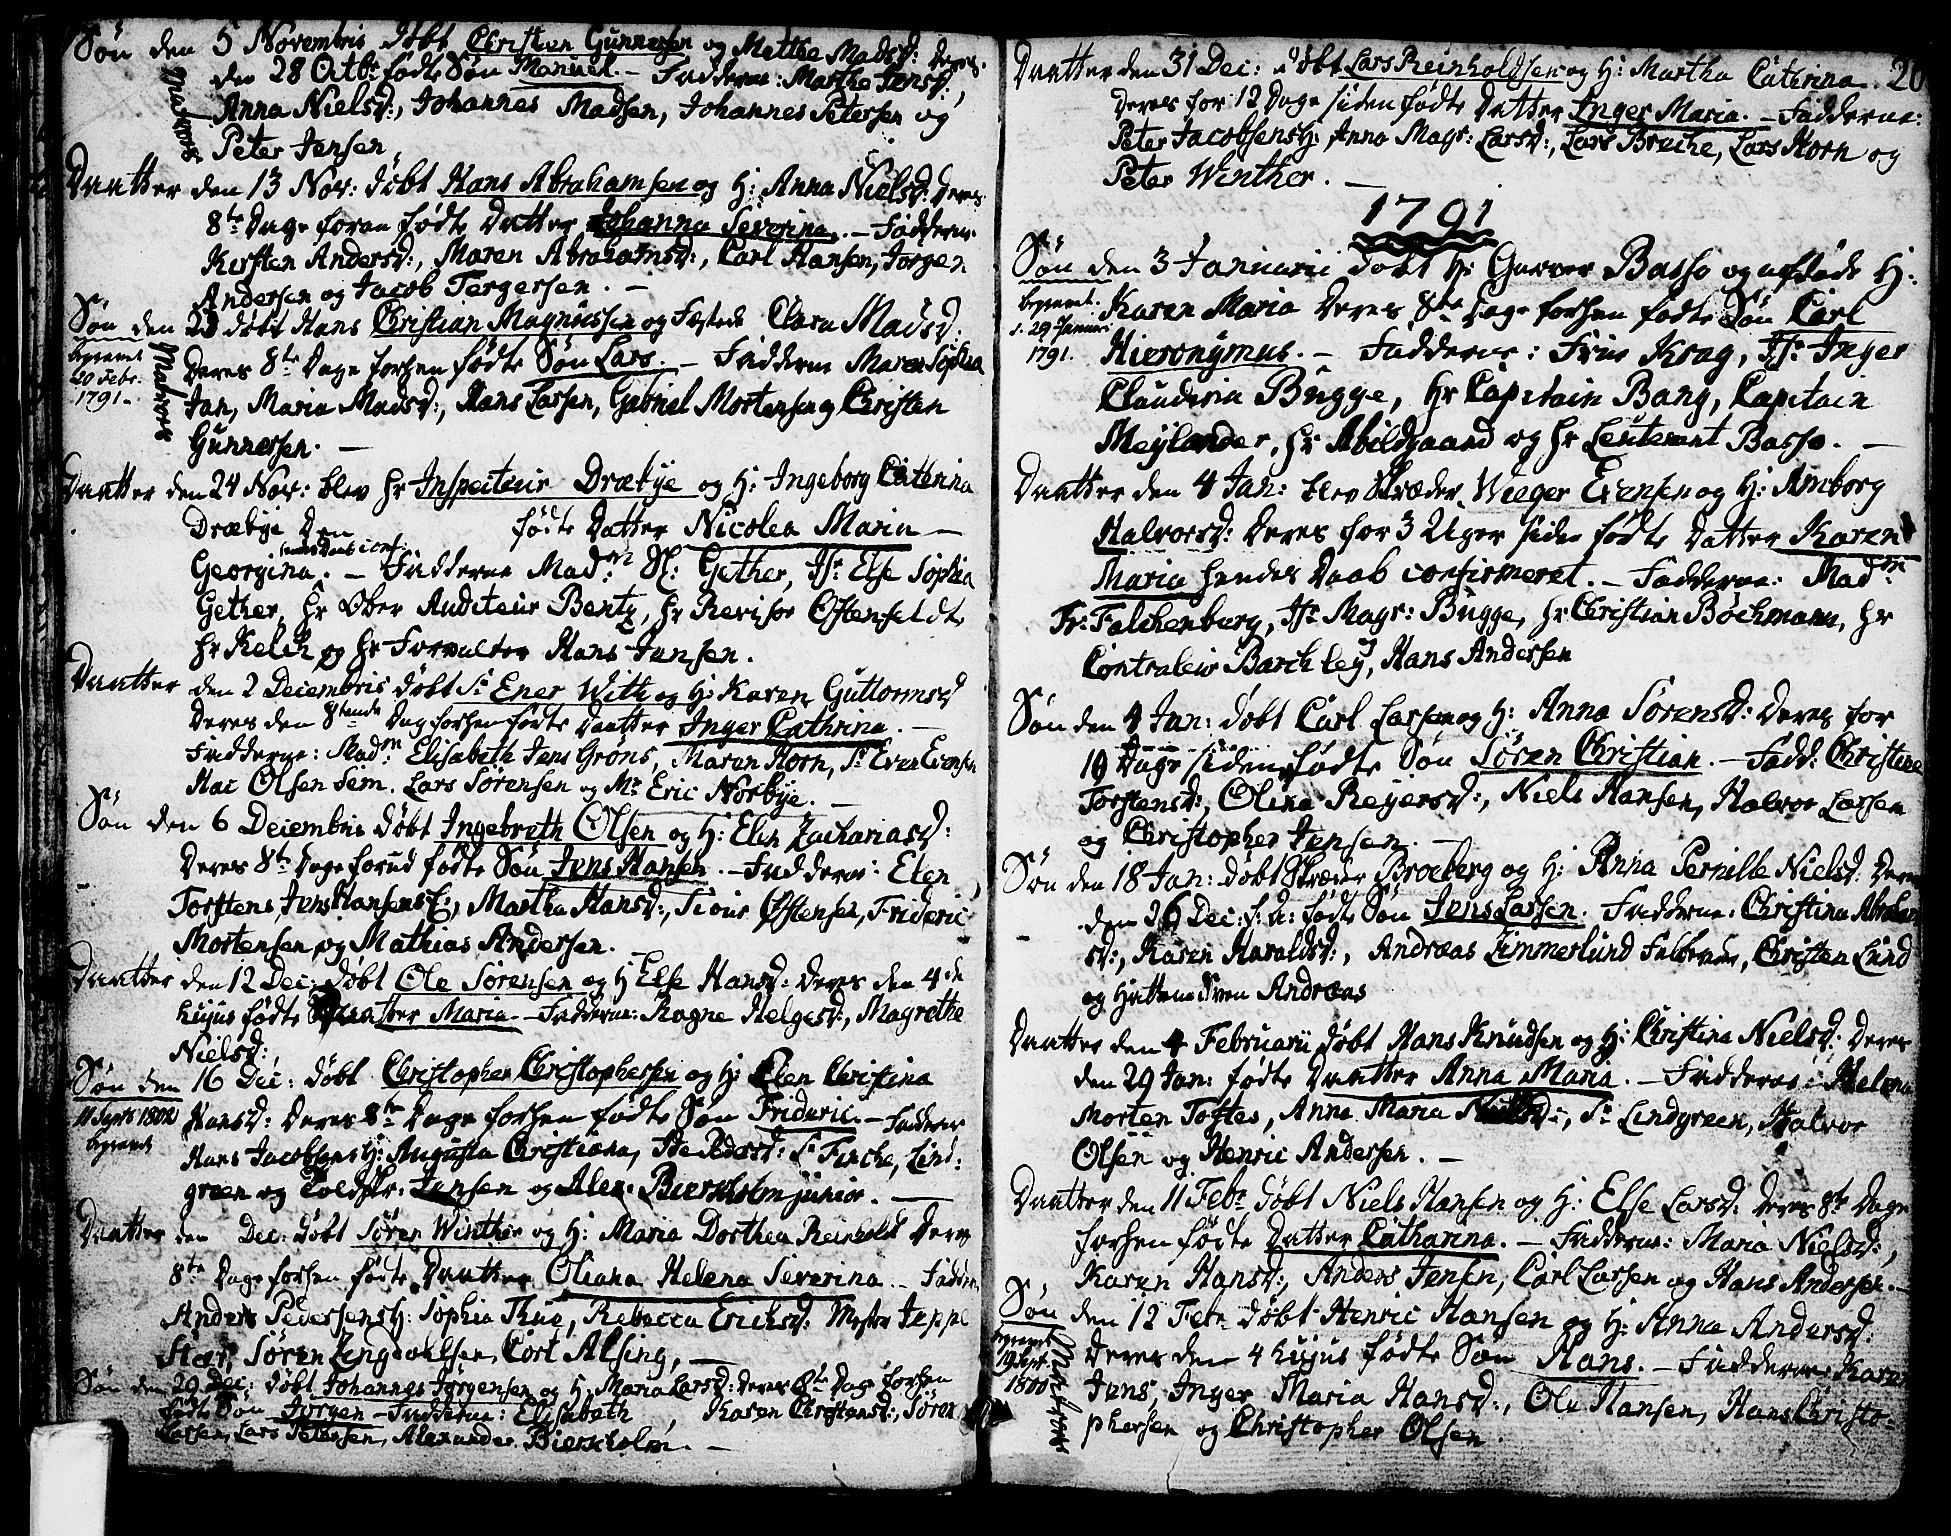 Søn den 5 Novembris døbt Christen Gunnersen og Marthe Madsd: deres
den 28 Octbr fødte Søn Manuel. – Fadderne: Marthe Jensd:,
Anna Nielsd:, Johannes Madsen, Johannes Petersen og
Peter Jensen
Daatter den 13 Nov: døbt Hans Abrahamsen og H: Anna Nielsd: deres
8te Dage foran fødte Datter Johanna Severina. – Fadderne
Kirsten Andersd:, Maren Abrahamsd:, Carl Hansen, Jørgen
Andersen og Jacob Tergersen. –
Søn den 23 døbt Hans Christian Magnussen og Fæstede Clara Madsd:
begravet
20 Febr.
1791.
Deres 8te Dage forhen fødte Søn Lars. – Fadderne Maren Sophia
Jan, Maria Madsd:, Hans Larsen, Gabriel Mortensen og Christen
Gunnersen. –
Daatter den 24 Nov: blev hr Inspecteur Dræbye og H: Ingeborg Catrina
Dræbye den fødte Datter Nicolea Maria –
Georgina. – Fadderne Madm Sl: Gether, Jfr Else Sophia
Gether, hr Ober Auditeur Bentz, hr Revisor Ostenfeldt
hr Kelch og hr Forvalter Hans Jansen.
Daatter den 2 Decembris døbt Sr Ener With og H: Karen Guttormsd
Deres den 8tende Dag forhen fødte Daatter Inger Cathrina. –
Fadderne: Madm Elisabeth Jens Grøns, Maren Horn, Sr Even Evensen
Hai Olsen Sem. Lars Sørensen og Mr Eric Norbye. –
Søn den 6 Decembris døbt Ingebreth Olsen og H: Elen Zachariasd:
Deres 8te Dage forud fødte Søn Jens Hansen. – Fadderne: Elen
Torstens, Jens Hansens H:, Martha Hansd:, Siour Østensen, Frideric
Mortensen og Mathias Andersen.
Daatter den 12 Dec: døbt Ole Sørensen og H Else Hansd: Deres den 4de
hujus fødte Daatter Maria – Fadderne: Ragne Helgesd:, Magrethe
Nielsd:,
Søn den 16 Dec: døbt Christopher Christophersen og H: Elen Christina
begravet
Hansd: Deres 8te Dage forhen fødte Søn Frideric. – Fadderne
Hans Jacobsens H: Augusta Christiana, Sr Finche, Lind:
green og Jansen og Alex: Bierkholm junior. –
Daatter den Dec: døbt Søren Winther og H: Maria Dorthea Reinholdt Deres
8te Dage forhen fødte Daatter Oliana Helena Severina – Fadder
Anders Pedersens H: Sophia Thue, Rebecca Ericksd: Mester Jeppe
Søren Lingevaldsen, Cort Alsing, –
Søn den 29 Dec: døbt Johannes Jørgensen og H: Maria Larsd: Deres 8te Dage forhen
fødte Søn Jørgen – Fadderne: Elisabeth , Karen Christensd:, Søren
Larsen, Lars Petersen, Alexander Bierkholm. –
Daatter den 31 Dec: døbt Lars Reinholdsen og H: Martha Cathrina. 20
Deres for 12 Dage siden fødte Datter Inger Maria. – Fadderne:
Peter Jacobsens H: Anna Magr: Larsd:, Lars Bruche, Lars Horn og
Peter Winther. –
1791
Søn den 3 Januarii døbt Hr Garver Basso og H:
begravet
d. 29 Januari
1791.
Karen Maria Deres 8te Dage forhen fødte Søn Carl
Hieronymus. – Fadderne: Frue Krag, Jfr Inger
Claudina Bugge, hr Capitain Bang, Capitain
Meylander, hr Abildgaard og hr Leutenant Basso. –
Daatter den 4 Jan: blev Skræder Weeger Evensen og H: Amborg
Halvorsd: Deres for 3 Uger siden fødte Datter Karen
Maria hendes Daab confirmeret. – Fadderne: Madm
Fr: Falckenburg, Jfr Magr: Bugge, hr Christian Bøchmann, hr
Contraleur Barchley, Hans Andersen
Søn den 4 Jan: døbt Carl Larsen og H: Anna Sørensd: Deres for
19 Dage siden fødte Søn Søren Christian. – Fadd: Christine
Torstensd:, Olina Reyersd:, Niels Hansen, Halvor Larsen
og Christopher Jensen. –
Søn den 18 Jan: døbt Skræder Broeberg og H: Anna Pernille Nielsd: Deres
den 26 Dec: f: a: fødte Søn Jens Larsen. Fadderne: Christina Abraham
sd:, Karen Haraldsd:, Andreas Zimmerlund, Christen Lund
og Andreas
Daatter den 4 Februarii døbt Hans Knudsen og H: Christina Nielsd: Deres
den 29 Jan: fødte Daatter Anna Maria. – Fadderne: Helena
Morten Toftes, Anna Maria Nielsd:, Sr Lindgreen, Halvor
Olsen og Henric Andersen. –
Daatter den 11 Febr døbt Niels Hansen og H: Else Larsd: Deres 8te Dage
forhen fødte Datter Catharina. – Fadderne: Maria Nielsd:,
Karen Hansd:, Anders Jensen, Carl Larsen og Hans Andersen. –
Søn den 12 Febr døbt Henric Hansen og H: Anna Andersd:
begravet
19 Sept.
1800
Deres den 4 hujus fødte Søn Hans. – Fadderne: Karen
Jens, Inger Maria Hansd:, Ole Hansen, Hans Christo-
phersen og Christopher Olsen.